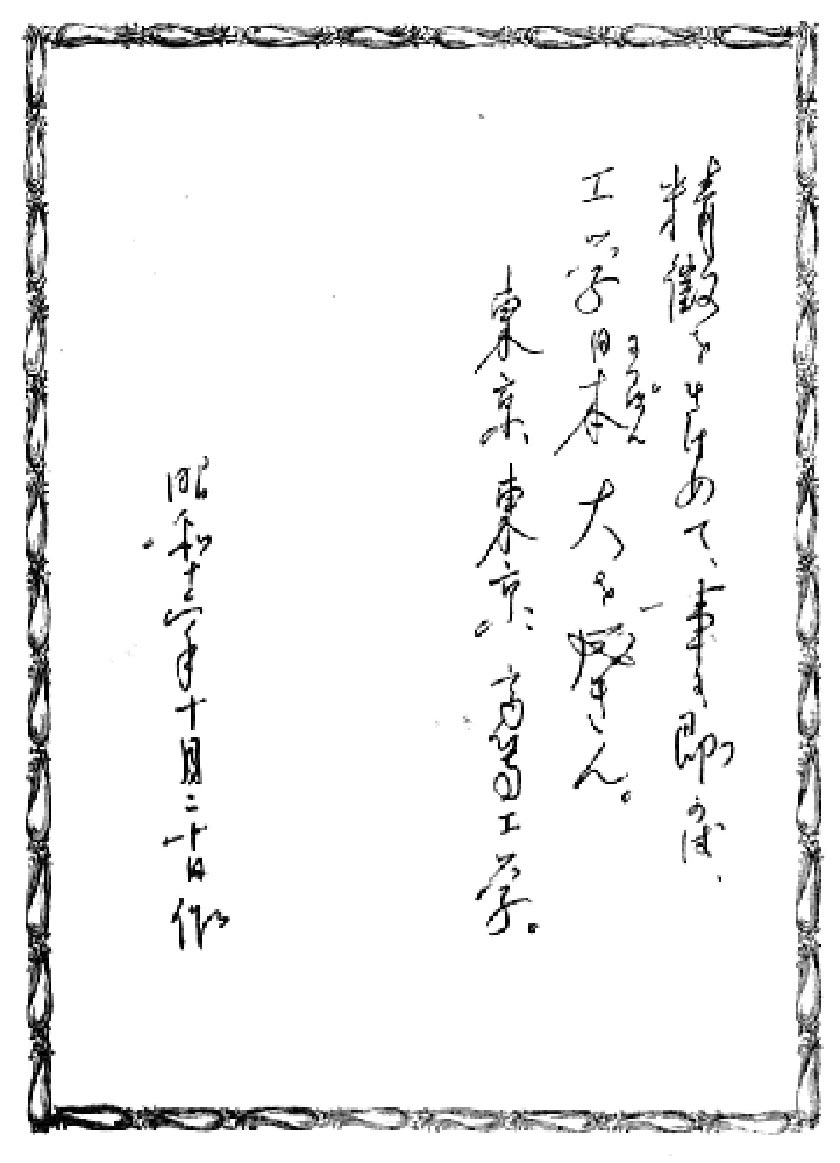 精微をきはめて、事に即かば、
工学日本大を成さん。
にっぽん
東京、東京、高等工学。
昭和十六年十月二十日作